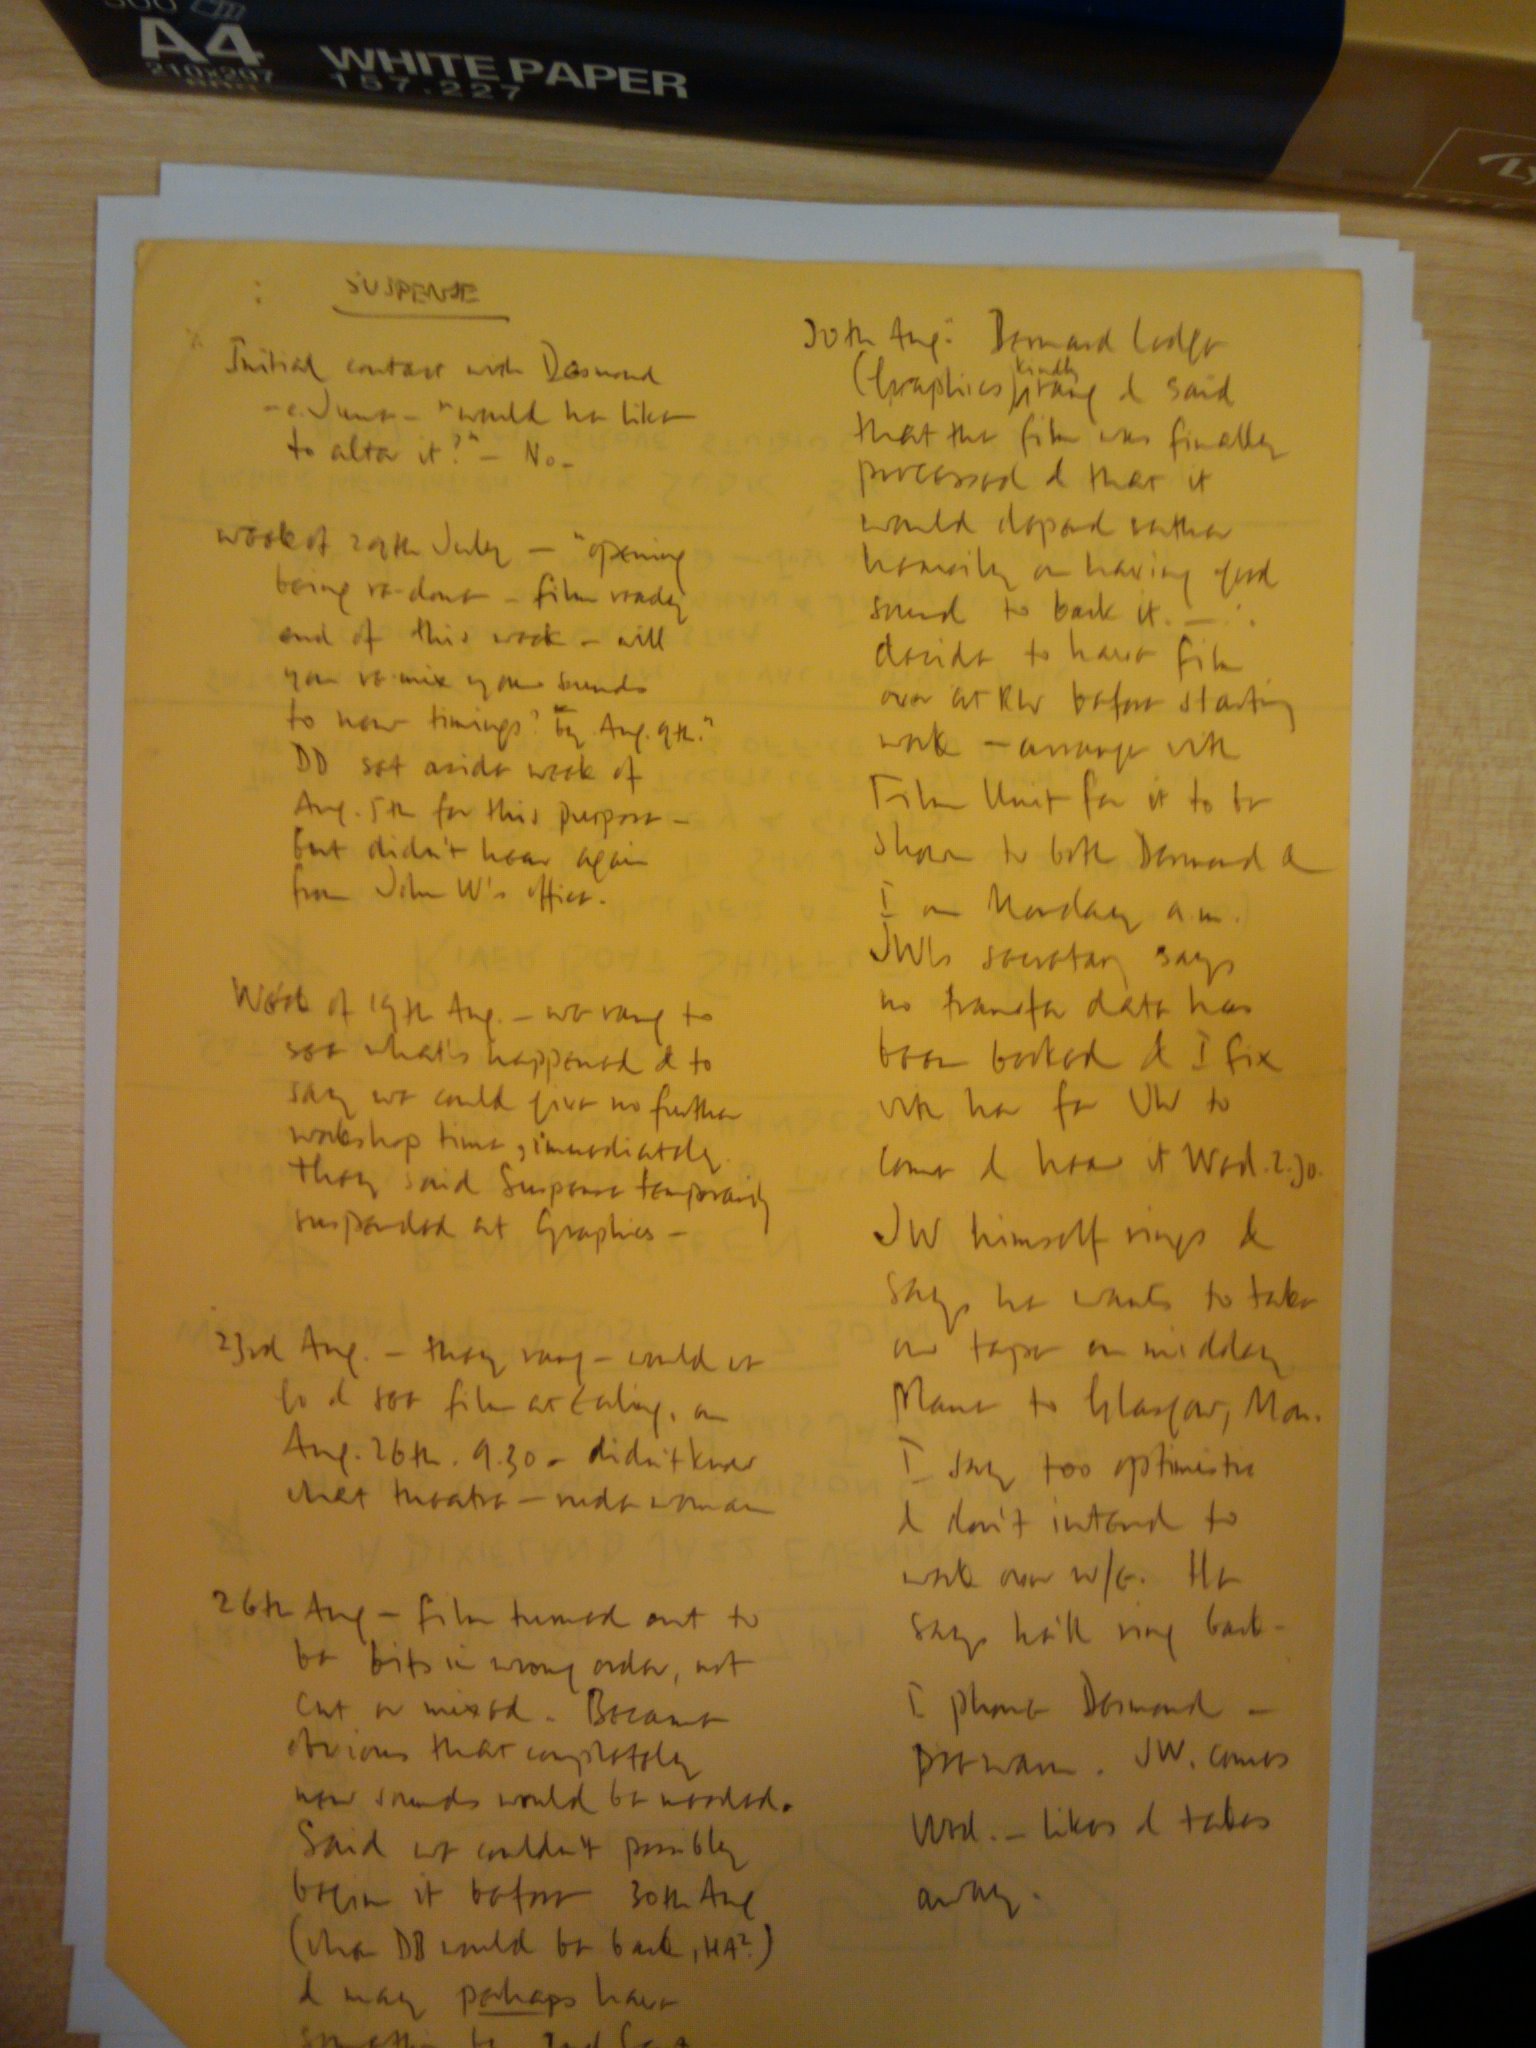 500
A4
210x297
WHITE PAPER
157.227
SUSPENSE
Initial contact with Desmond
- c. June - "would he like
to alter it?" - No -
Week of 29th July - "opening
being re-done - film ready
end of this week - will
you re-mix your sounds
to new timings? by Aug. 9th."
DD set aside week of
Aug. 5th for this purpose -
but didn't hear again
from John W's office.
Week of 19th Aug. - we rang to
see what's happened & to
say we could give no further
workshop time, immediately.
They said Suspense temporarily
suspended at Graphics -
23rd Aug. - they rang - would we
go & see film at Ealing, on
Aug. 26th. 9.30 - didn't know
what theatre - rude woman
26th Aug - film turned out to
be bits in wrong order, not
cut or mixed. Became
obvious that completely
new sounds would be needed.
Said we couldn't possibly
begin it before 30th Aug
(when DB would be back, HA?)
& may perhaps have
30th Aug: Bernard Lodge
(Graphics) kindly rang & said
that the film was finally
processed & that it
would depend rather
heavily on having good
sound to back it. -
decide to have film
over at RW before starting
work - arrange with
Film Unit for it to be
shown to both Desmond &
I on Monday a.m.
JW's secretary says
no transfer date has
been booked & I fix
with her for JW to
come & hear it Wed. 2.30.
JW himself rings &
says he wants to take
our tape on midday
plane to Glasgow, Mon.
I say too optimistic
& don't intend to
work over w/e. He
says he'll ring back -
I phone Desmond -
prewarn. JW. comes
Wed. - likes & takes
away.